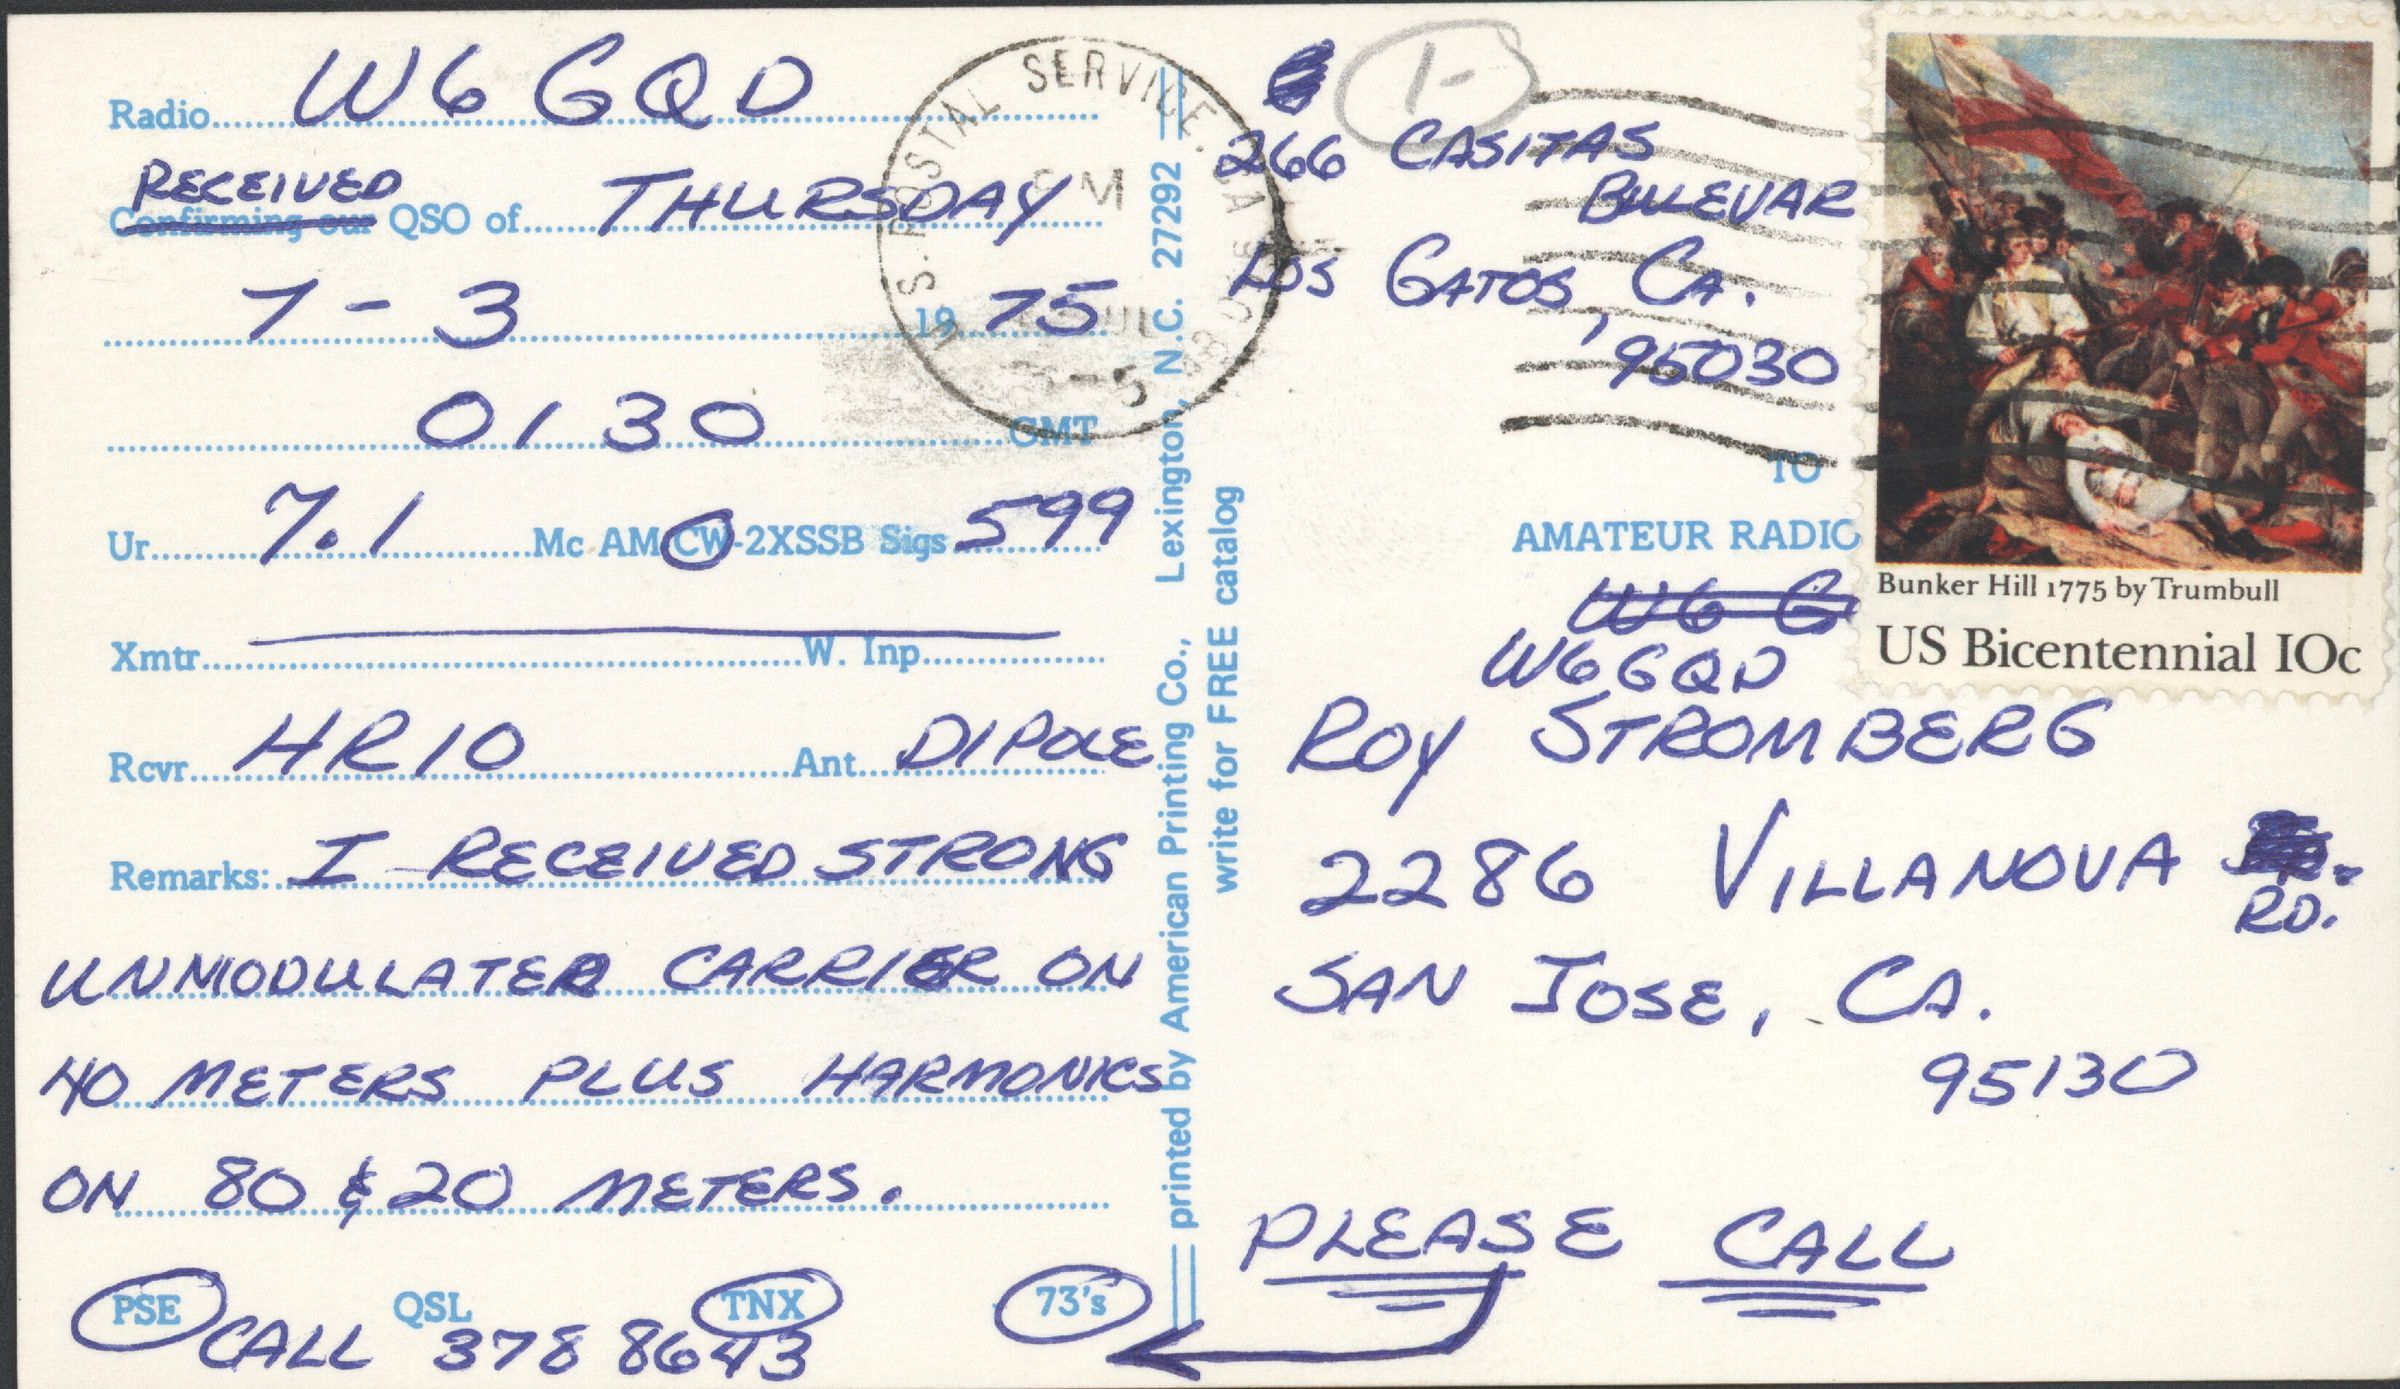 Radio W6GQD
RECEIVED
Confirming our QSO of THURSDAY
7-3 19 75
0130 GMT
Ur 7.1 Mc AM-CW-2XSSB Sigs 599
Xmtr W. Inp
Rcvr HR10 Ant DIPOLE
Remarks: I RECEIVED STRONG
UNMODULATED CARRIER ON
40 METERS PLUS HARMONICS
ON 80 & 20 METERS.
PSE QSL TNX 73's
CALL 378 8643
U.S. POSTAL SERVICE, CA
PM
printed by American Printing Co., Lexington, N.C. 27292
write for FREE catalog
1-
266 CASITAS
BULEVAR
LOS GATOS, CA.
95030
TO
AMATEUR RADIO
W6 G
W6GQD
ROY STROMBERG
2286 VILLANOVA
RD.
SAN JOSE, CA.
95130
PLEASE CALL
Bunker Hill 1775 by Trumbull
US Bicentennial 10c